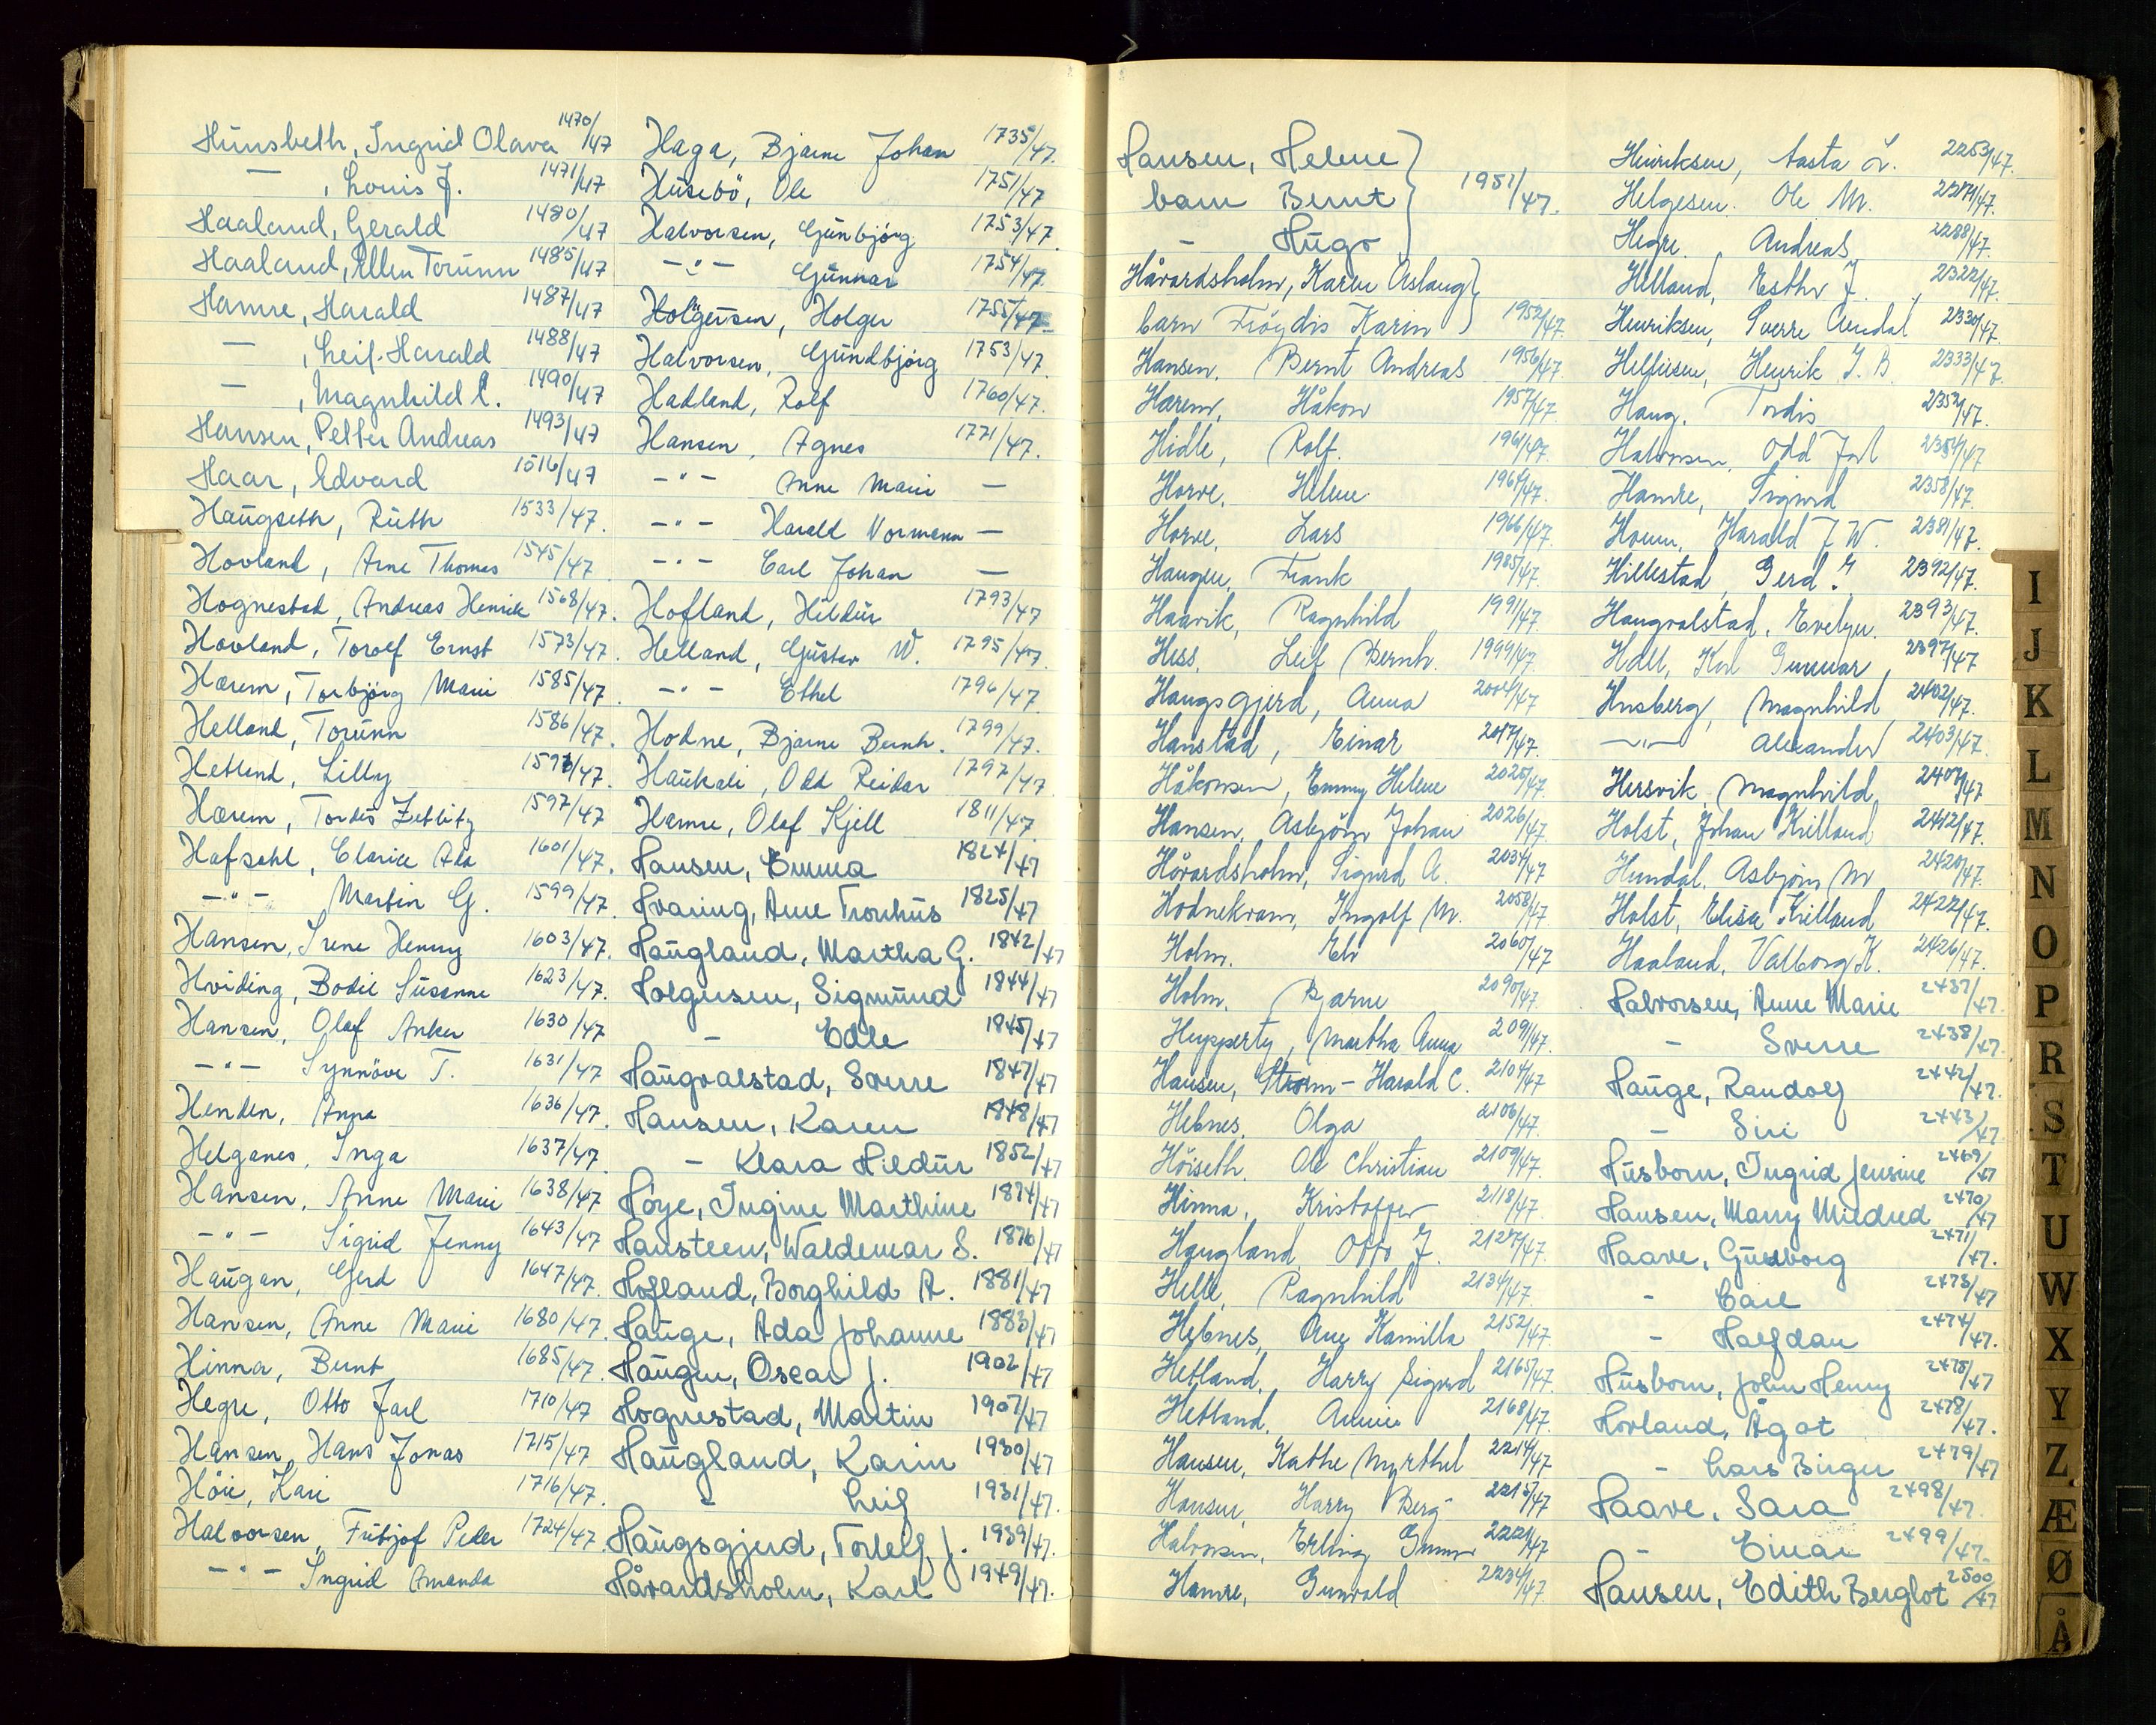 Hunsbeth, Ingrid Olava 1470/47
— , Louis J. 1471/47
Haaland, Gerald 1480/47
Haaland, Ellen Torunn 1485/47
Hamre, Harald 1487/47
— , Leif-Harald 1488/47
— , Magnhild 1490/47
Hansen, Petter Andreas 1493/47
Haar, Edvard 1516/47
Haugseth, Ruth 1533/47.
Hovland, Arne Thomas 1545/47
Hognestad, Andreas Henrik 1568/47.
Hovland, Torolf Ernst 1573/47.
Hærem, Torbjörg Marie 1585/47.
Helland, Torunn 1586/47.
Hetland, Lilly 1596/47.
Hærem, Tordis Zetlitz 1597/47
Hafsahl, Clarice Ada 1601/47.
—"— Martin G. 1599/47.
Hansen, Irene Henny 1603/47.
Hviding, Bodil Susanne 1623/47.
Hansen, Olaf Anker 1630/47
—"— Synnöve T. 1631/47
Henden, Anna 1636/47.
Helganes, Inga 1637/47.
Hansen, Anne Marie 1638/47
—"— Sigrid Jenny 1643/47
Haugan, Gerd 1647/47.
Hansen, Anne Marie 1680/47.
Hinna, Bernt 1685/47.
Hegre, Otto Jarl 1710/47
Hansen, Hans Jonas 1715/47
Höie, Kari 1716/47.
Halvorsen, Fritjof Peder 1724/47.
—"— Ingrid Amanda
Haga, Bjarne Johan 1735/47.
Husebö, Ole 1751/47
Halvorsen, Gunbjörg 1753/47
—"— Gunnar 1754/47
Holgersen, Holger 1755/47
Halvorsen, Gundbjörg 1753/47.
Hadland, Rolf 1760/47.
Hansen, Agnes 1771/47.
—"— Anne Marie —
—"— Harald Normann —
—"— Carl Johan —
Hofland, Hildur 1793/47
Helland, Gustav W. 1795/47
—"— Ethel 1796/47.
Hodne, Bjarne Bernh. 1799/47.
Haukali, Odd Reidar 1797/47
Hamre, Olaf Kjell 1811/47
Hansen, Emma 1824/47
Hvaring, Arne Tronhus 1825/47
Haugland, Martha G. 1842/47
Holgersen, Sigmund 1844/47
— Edle 1845/47
Haugvalstad, Sverre 1847/47
Hansen, Karen 1848/47
— Klara Hildur 1852/47
Höye, Ingine Marthine 1874/47
Hansteen, Waldemar S. 1876/47
Hofland, Borghild A. 1881/47
Hauge, Ada Johanne 1883/47
Haugen, Oscar J. 1902/47
Hognestad, Martin 1907/47
Haugland, Karin 1930/47
— Leif 1931/47.
Haugsgjerd, Torleif J. 1939/47.
Håvardsholm, Karl 1949/47.
Hansen, Helene
barn Bernt 1951/47.
— Hugo
Håvardsholm, Karen Aslaug
barn Fröydis Karin 1952/47.
Hansen, Bernt Andreas 1956/47.
Hærem, Håkon 1957/47
Hidle, Rolf. 1961/47.
Horve, Helene 1964/47.
Horve, Lars 1966/47.
Haugen, Frank 1985/47.
Haavik, Ragnhild 1991/47.
Hess, Leif Bernh. 1999/47.
Haugsgjerd, Anna 2004/47
Hanstad, Einar 2017/47.
Håkonsen, Emmy Helene 2025/47.
Hansen, Asbjörn Johan 2026/47.
Håvardsholm, Sigurd A. 2034/47
Hodnekvam, Ingolf M. 2058/47
Holm, Eli 2060/47
Holm, Bjarne 2090/47.
Martha Anna 2091/47.
Hansen, Strøm-Harald C. 2104/47
Hebnes, Olga 2106/47.
Höiseth, Ole Christian 2109/47.
Hinna, Kristoffer 2118/47.
Haugland, Otto J. 2127/47.
Helle, Ragnhild 2134/47.
Hebnes, Ane Kamilla 2152/47.
Hetland, Harry Sigurd 2165/47.
Hetland, Annie 2168/47.
Hansen, Kathe Myrthel 2214/47
Hansen, Harry Berg 2215/47
Halvorsen, Erling Gunnar 2221/47
Hamre, Gunvald 2234/47
Henriksen, Aasta L. 2253/47.
Helgesen, Ole M. 2284/47.
Hegre, Andreas 2288/47.
Helland, Esther J. 2322/47.
Henriksen, Sverre Arndal 2330/47.
Helliesen, Henrik J. B. 2333/47.
Haug, Tordis 2352/47.
Halvorsen, Odd Jarl 2354/47
Hamre, Sigurd 2358/47.
Houm, Harald J W. 2381/47.
Hillestad, Gerd. E 2392/47.
Haugvalstad, Evelyn. 2393/47.
Hall, Karl Gunnar, 2397/47
Husberg, Magnhild 2402/47.
—"— Alexander 2403/47.
Hersvik, Magnhild 2407/47
Holst, Johan Kielland 2412/47.
Hundal, Asbjörn M 2420/47.
Holst, Elisa Kielland 2422/47.
Haaland, Valborg K. 2426/47.
Halvorsen, Anne Marie 2437/47.
— Sverre 2438/47.
Hauge, Randolf 2442/47.
— Siri 2443/47
Husborn, Ingrid Jensine 2469/47
Hansen, Marry Mildred 2470/47
Haave, Gudborg 2471/47.
— Carl 2473/47
— Halfdan 2474/47.
Husborn, John Henry 2475/47
Hovland, Ågot 2478/47.
— Lars Birger 2479/47
Haave, Sara 2498/47.
— Einar 2499/47.
Hansen, Edith Berglot 2500/47
I
J
K
L
M
N
O
P
R
S
T
U
W
X
Y
Z
Æ
Ø
Å